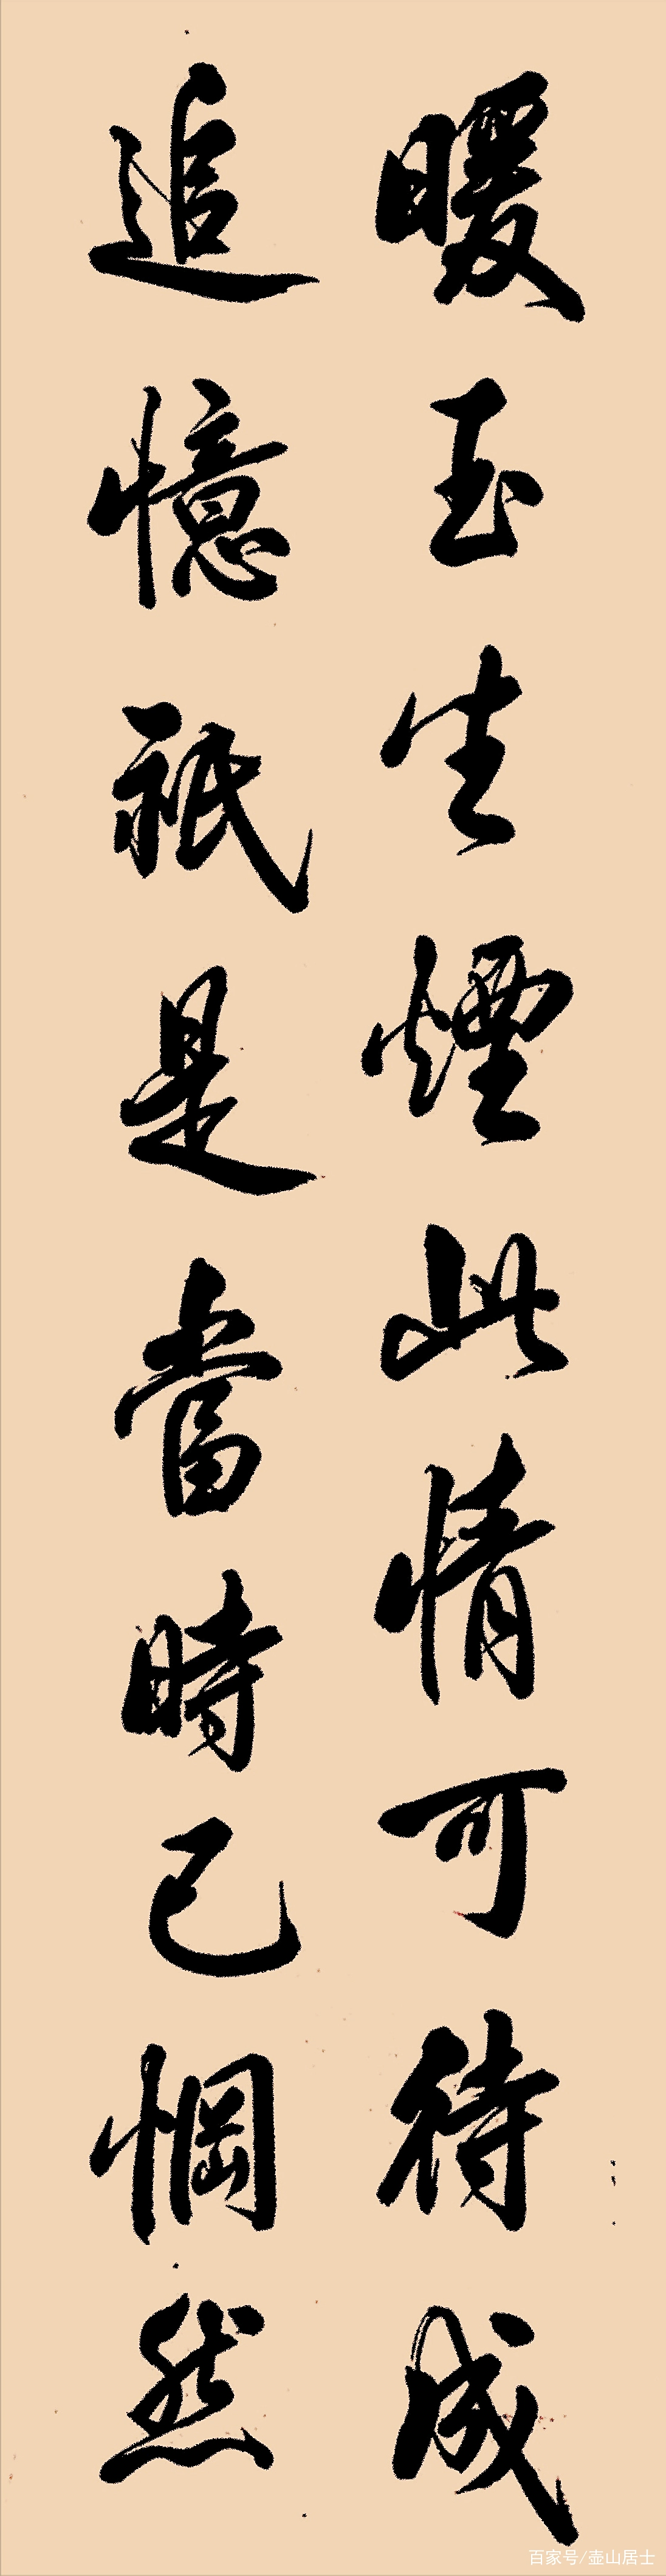 暖玉生煙此情可待成
追憶祇是當時已惘然
百家号/壶山居士